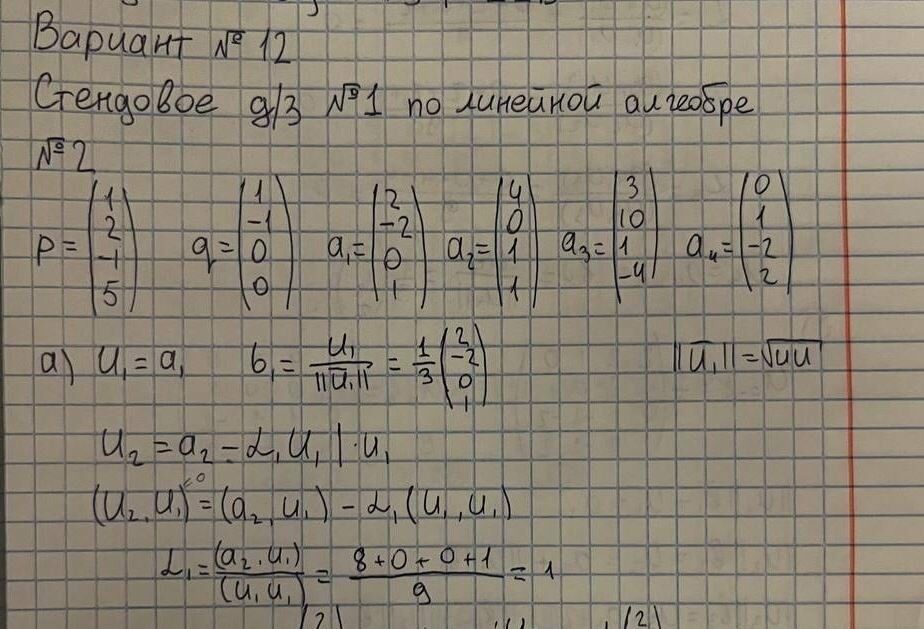 Вариант № 12
Стендовое д/з №1 по линейной алгебре
№2
p = (1 2 -1 5) q = (1 -1 0 0) a₁ = (2 -2 0 1) a₂ = (4 0 1 1) a₃ = (3 10 1 -4) a₄ = (0 1 -2 2)
а) U₁ = a₁ b₁ = U₁/||U₁|| = 1/3 (2 -2 0 1) ||U₁|| = √UU
U₂ = a₂ - α₁U₁ | · u₁
(U₂, U₁)⁼⁰ = (a₂, U₁) - α₁(U₁, U₁)
α₁ = (a₂, U₁)/(U₁ U₁) = 8+0+0+1/9 = 1